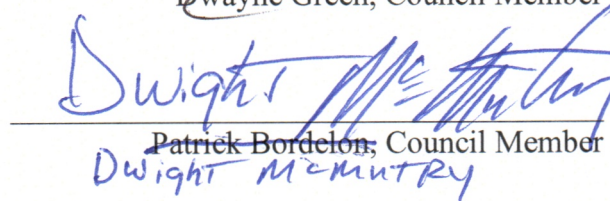 Dwayne Green, Council Member
Dwight McMutry
Patrick Bordelon, Council Member
Dwight McMutry